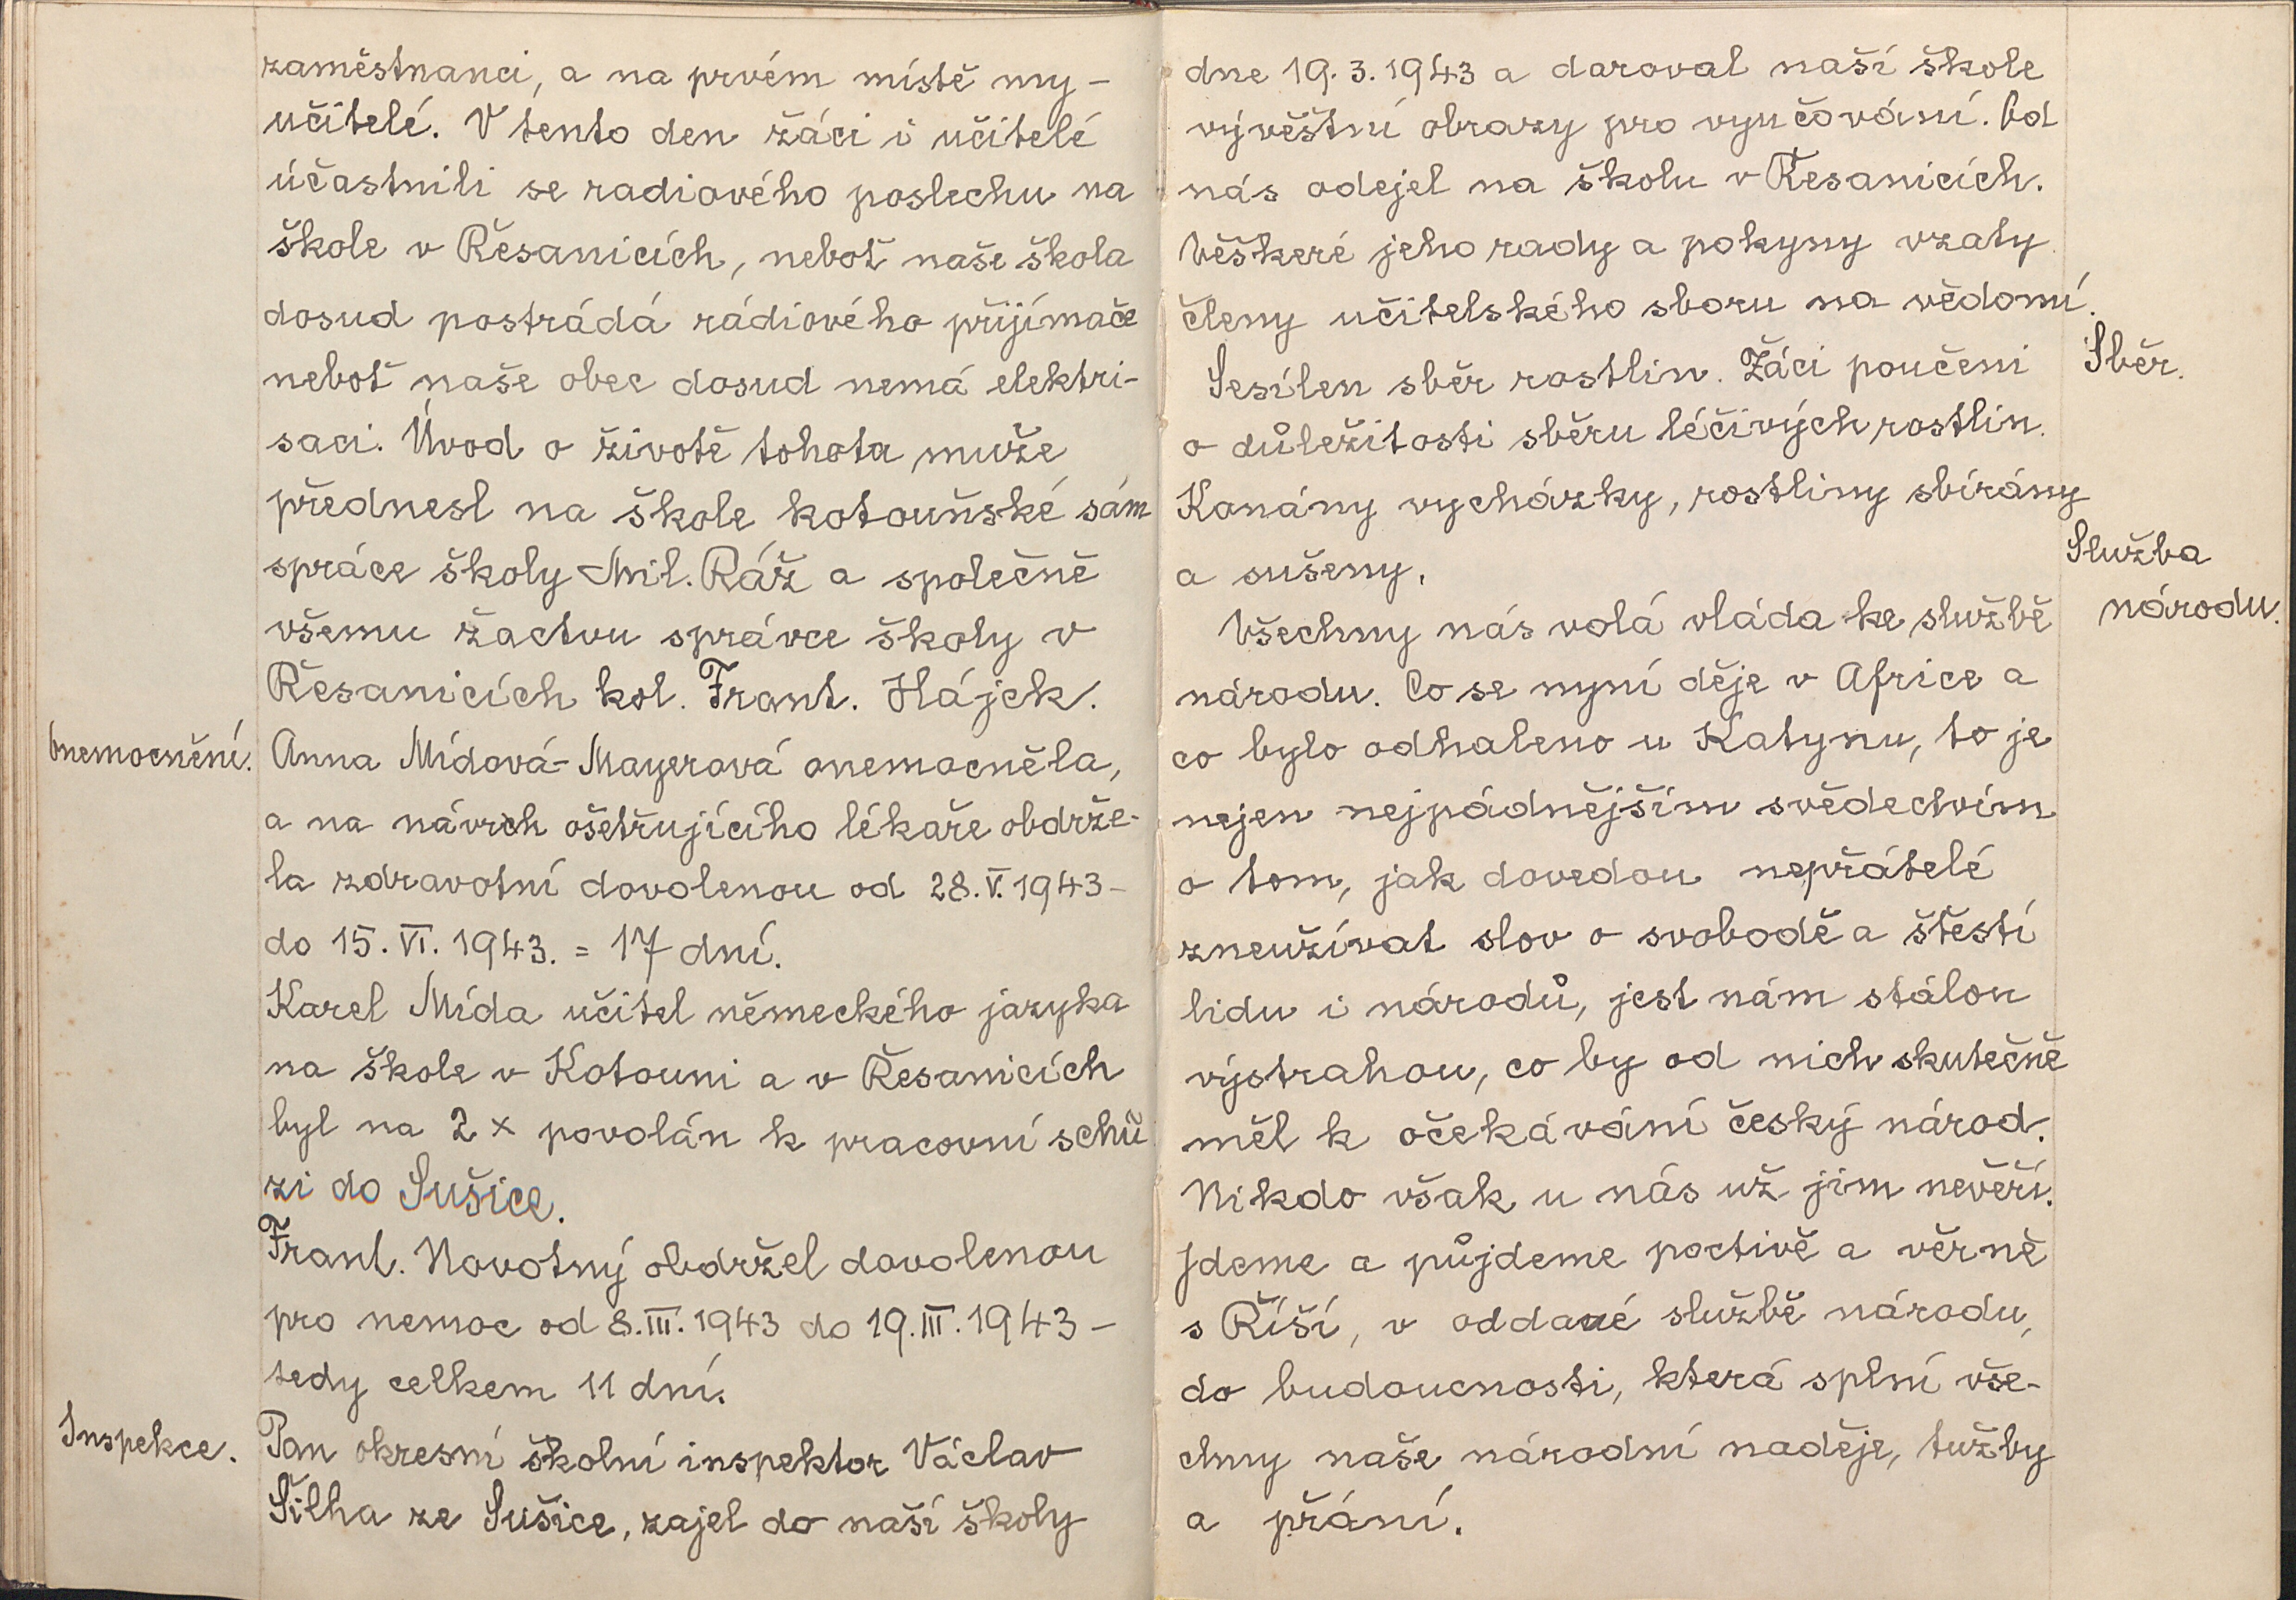 zaměstnanci, a na prvém místě my –
učitelé. V tento den žáci i učitelé
účastnili se radiového poslechu na
škole v Řesanicích, neboť naše škola
dosud postrádá rádiového přijímače
neboť naše obec dosud nemá elektri-
saci. Úvod o životě tohoto muže
přednesl na škole kotouňské sám
spráce školy Mil. Ráž a společně
všemu žactvu správce školy v
Řesanicích kol. Frant. Hájek.
Onemocnění.
Anna Mídová-Mayerová onemocněla,
a na návrh ošetřujícího lékaře obdrže-
la zdravotní dovolenou od 28. V. 1943 –
do 15. VI. 1943. = 17 dní.
Karel Mída učitel německého jazyka
na škole v Kotouni a v Řesanicích
byl na 2 x povolán k pracovní schů
zi do Sušice.
Frant. Novotný obdržel dovolenou
pro nemoc od 8. III. 1943 do 19. III. 1943 –
tedy celkem 11 dní.
Inspekce.
Pan okresní školní inspektor Václav
Šilha ze Sušice, zajel do naší školy
dne 19. 3. 1943 a daroval naší škole
vývěštní obrazy pro vyučování. Od
nás odejel na školu v Řesanicích.
Věškeré jeho rady a pokyny vzaty
členy učitelského sboru na vědomí.
Sběr.
Sesílen sběr rostlin. Žáci poučeni
o důležitosti sběru léčivých rostlin.
Konány vycházky, rostliny sbírány
a sušeny.
Služba
národu.
Všechny nás volá vláda ke službě
národu. Co se nyní děje v Africe a
co bylo odhaleno u Katynu, to je
nejen nejpádnějším svědectvím
o tom, jak dovedou nepřátelé
zneužívat slov o svobodě a štěstí
lidu i národů, jest nám stálou
výstrahou, co by od nich skutečně
měl k očekávání český národ.
Nikdo však u nás už jim nevěří.
Jdeme a půjdeme poctivě a věrně
s Říší, v oddané službě národu,
do budoucnosti, která splní vše-
chny naše národní naděje, tužby
a přání.